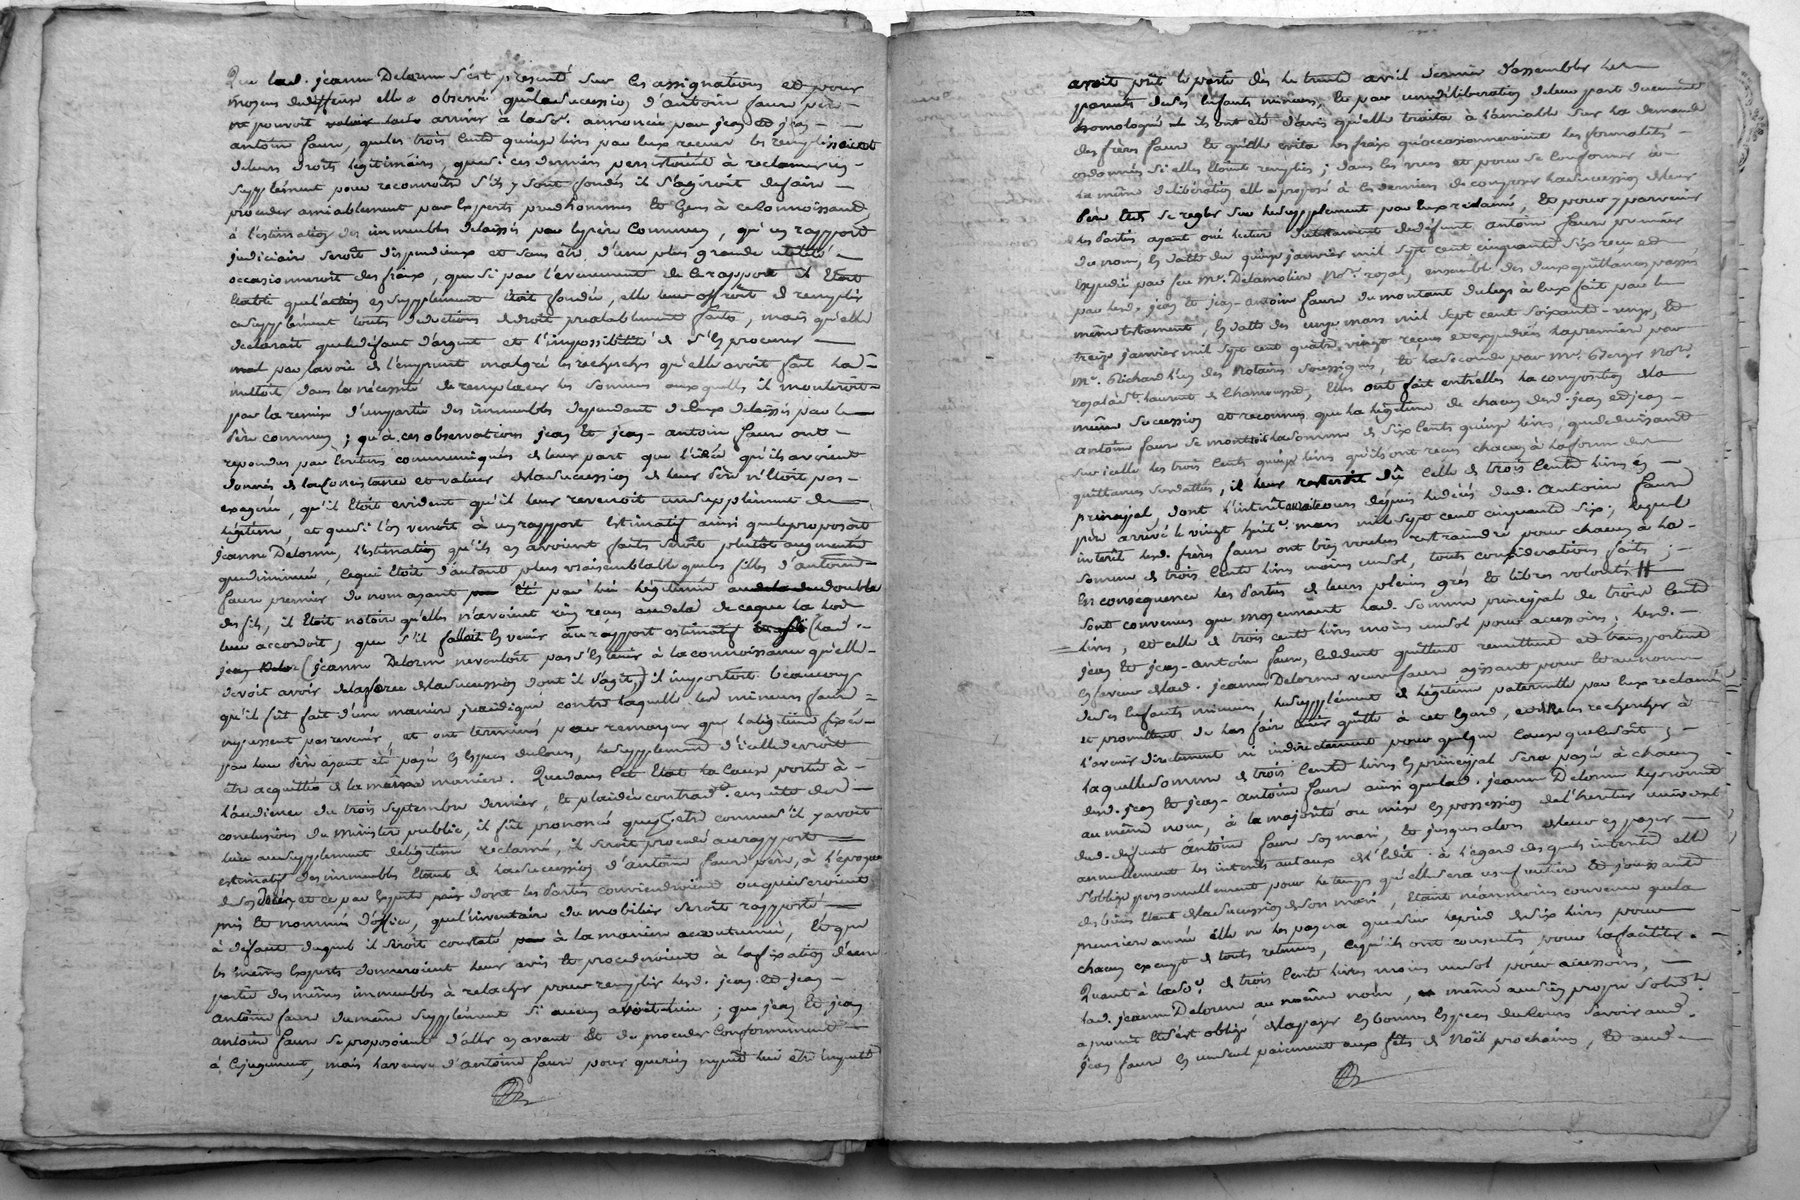 Que lad. jeanne Delorme s'est presenté sur les assignations et pour
moyens dedeffense elle a observé quelasucession d'antoine faure père -
ne pouvoit arriver à lasoe. annoncée par jean et jean -
antoine faure, queles trois cent quinze livres par eux recues les remplissoient
deleurs droits legitimaires, quesi ces derniers persistoient à reclamer un -
supplément pour reconnoitre s'ils y sont fondés il s'agiroit defaire -
proceder amiablement par experts prudhommes et gens à ce connoissand
à l'estimation des immeubles delaissés par lepère commun, qu'un rapport
judiciaire seroit dispendieux et sans être d'une plus grande utilité -
occasionneroit des fraix, que si par l'evenement de ce rapport il étoit
etabli quel'action en supplément étoit fondée, elle leur offroit de remplir
cesupplément toutes deductions dedroit prealablement faites, mais qu'elle
declaroit queledefaut d'argent et l'impossibilité de s'en procurer -
meme par lavoie de l'emprunt malgré les recherches qu'elle avoit fait la -
mettoit dans la nécessité de remplacer les sommes auxquelles il monteroit -
par la remise d'unepartie des immeubles dependant de ceux delaissés par le
Père commun ; qu'à ces observations jean et jean - antoine faure ont -
repondu par ecritures communiquées de leur part que l'idée qu'ils avoient
donnée de laconsistance et valeur delasucession de leur Père n'étoit pas -
exagerée, qu'il étoit evident qu'il leur revenoit unsupplément de
légitime, et quesi l'on venoit à un rapport estimatif ainsi queleproposoit
jeanne Delorme, l'estimation qu'ils en avoient faite seroit plutôt augmentée
quediminuée, cequi étoit d'autant plus vraisemblable queles filles d'antoine
faure premier du nom ayant été par lui légitimées audela dudouble
des fils, il étoit notoire qu'elles n'avoient rien reçu audela de ceque la loi
leur accordoit, que s'il falloit en venir au rapport estimatif (lad. -
jean (jeanne Delorme nevouloit pas s'en tenir à la connoissance qu'elle -
devoit avoir delaforce delasucession dont il s'agit,) il importoit beaucoup
qu'il fût fait d'une manière juridique contre laquelle les mineurs faure -
nepussent pas revenir, et ont terminés par remarquer que lalégitime fixée -
par leur Père ayant été payée en especes ducours, lesupplement d'icelle devoit
être acquittée de la même manière. Quedans cet état la cause portée à -
l'audience du trois septembre dernier, et plaidée contradre. ensuite des -
conclusions du ministère public, il fût prononcé que pour connoitre s'il y avoit
lieu ausupplement delégitime reclamé, il seroit procedé aurapport -
estimatif des immeubles étant de lasucession d'antoine faure père, à l'époque
de son Décès, et ce par experts pris dont les Parties conviendroient ouquiseroient
pris et nommés d'office, quel'inventaire du mobilier seroit rapporté -
à defaut duquel il seroit constaté à la manière accoutumée, et que
les mêmes experts donneroient leur avis et procederoient à lafixation d'une
partie des mêmes immeubles à relacher pour remplir lesd. jean et jean -
antoine faure dumême supplément si aucun avoit lieu ; que jean et jean
antoine faure se proposoient d'aller en avant et de proceder conformement -
à cejugement, mais laveuve d'antoine faure pour querien nepût lui être imputé
avoit prit le parti dès le trente avril dernier d'assembler les
parents deses enfants mineurs, et par unedéliberation deleur part duement
homologuée ils ont été d'avis qu'elle traita à l'amiable sur la demande
des frères faure et qu'elle evita les fraix qu'occasionneroient les formalités -
ordonnées si elles étoient remplies ; dans les vues et pour se conformer à -
la même deliberation elle a proposé à ces derniers de composer lasucession deleur
Père et de se regler sur lesupplement par eux reclamé, et pour y parvenir
les Parties ayant oui lecture dutestament dudefunt antoine faure premier
du nom, en datte du quinze janvier mil sept cent cinquante six recu et
expedié par feu Me. Delamolière Nore. royal, ensemble des deuxquittances passées
par lesd. jean et jean - antoine faure du montant dulegs à eux fait par le
même testament, en datte des onze mars mil sept cent soixante - onze, et
treize janvier mil sept cent quatre vingt recues et expediées la première par
Me. Richard l'un des Notaires soussignés, et laseconde par Me. Nore.
royal à St. laurent de Chamousset, elles ont fait entrelles la composition dela
même sucession et reconnu que la légitime de chacun desd. jean et jean -
antoine faure se montoit à lasomme de six cents quinze livres, que deduisant
sur icelle les trois cents quinze livres qu'ils ont recu chacun à laforme des
quittances susdattées, il leur resteroit dû celle de trois cents livres en -
principal dont l'interêt a cours depuis ledécès dud. Antoine faure
père arrivé le vingt huite. mars mil sept cent cinquante six ; lequel
interêt lesd. frères faure ont bien voulu restraindre pour chacun à la -
somme de trois cents livres moins unsol, toutes considerations faites ; -
En consequence les Parties de leurs pleins grés et libres volontés //
sont convenues que moyennant lad. somme principal de trois cents
livres, et celle de trois cents livres moins unsol pour accessoires, lesd. -
jean et jean - antoine faure, cedent quittent remettent et transportent
en faveur delad. jeanne Delorme veuve faure agissant pour et aunom
deses enfants mineurs, lesupplément de légitime paternelle par eux reclamé
et promettent de les faire tenir quitte à cet egard, et dene les rechercher à
l'avenir directement ni indirectement pour quelque cause quecesoit ; -
laquellesomme de trois cents livres en principal sera payée à chacun
desd. jean et jean - antoine faure ainsi quelad. jeanne Delorme lepromet
au même nom, à la majorité ou mise en possession del'heritier universel
dud. defunt antoine faure son mari, et jusques alors deleur en payer -
annuellement les interêts autaux del'édit ; à l'egard desquels interêts elle
s'oblige personnellement pour letemps qu'elle sera usufruitière et jouissante
des biens étant delasucession deson mari, étant neanmoins convenu quela
premiere année elle ne les payera quesur lepied desix livres pour
chacun exempt de toutes retenues, cequ'ils ont consentis pour lafaciliter. -
Quant à lasoe. de trois cents livres moins unsol pour accessoires, -
lad. jeanne Delorme au même nom, même ausien propre solidre.
a promit et s'est obligé delapayer en bonnes especes ducours savoir aud.
jean faure en unseul paiement aux fêtes de Noël prochaines, et aud -